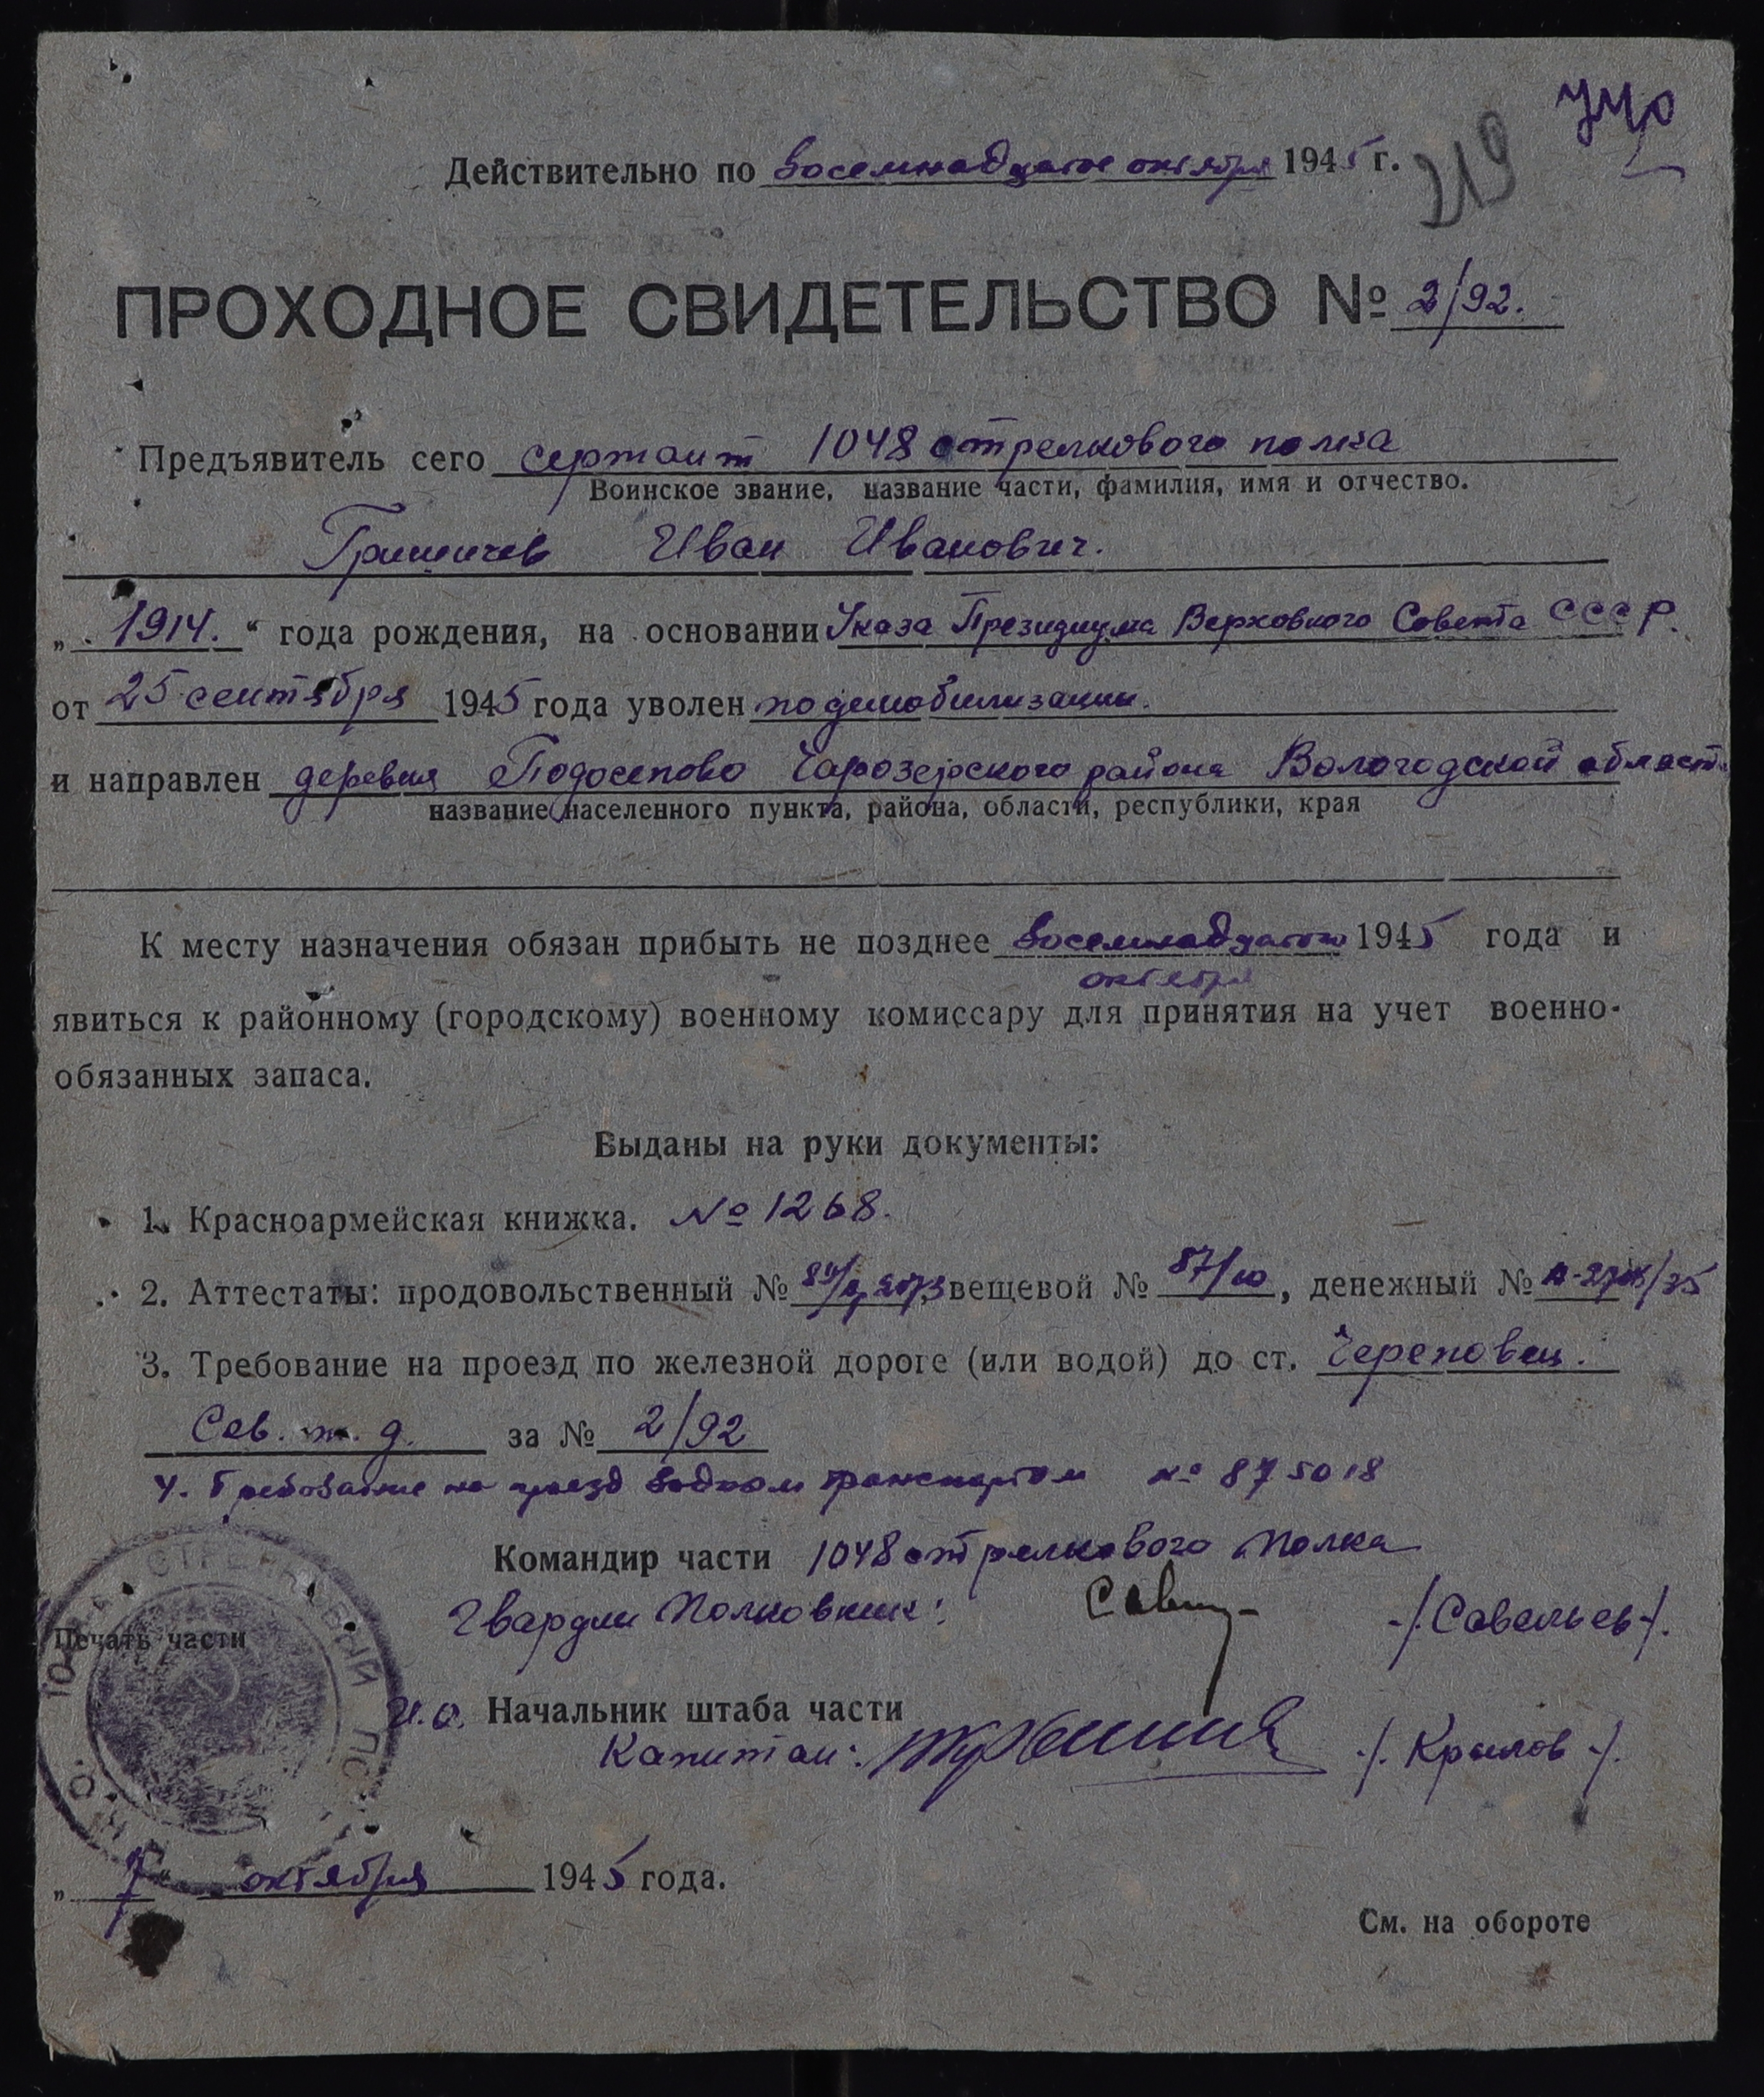 219
Действительно по восемнадцатое октября 1945 г.
ПРОХОДНОЕ СВИДЕТЕЛЬСТВО № 2/92.
Предъявитель сего сержант 1048 стрелкового полка
Воинское звание, название части, фамилия, имя и отчество.
Гришичев Иван Иванович.
„ 1914. “ года рождения, на основании Указа Президиума Верховного Совета СССР.
от 25 сентября 1945 года уволен по демобилизации.
и направлен деревня Подосепово Чарозерского района Вологодской област
название населенного пункта, района, области, республики, края
К месту назначения обязан прибыть не позднее восемнадцатого 1945 года и
октября
явиться к районному (городскому) военному комиссару для принятия на учет военно-
обязанных запаса.
Выданы на руки документы:
1. Красноармейская книжка. № 1268.
2. Аттестаты: продовольственный № вещевой № 87/10, денежный №
3. Требование на проезд по железной дороге (или водой) до ст. Череповец.
Сев. ж. д. за № 2/92
4. Требование на проезд водном транспортом № 875018
Командир части 1048 стрелкового полка
Гвардии Полковник: -/Савельев/.
Печать части
СТРЕЛКОВЫЙ
И.О. Начальник штаба части
Капитан: -/. Крылов -/.
„ 7 “ октября 1945 года.
См. на обороте